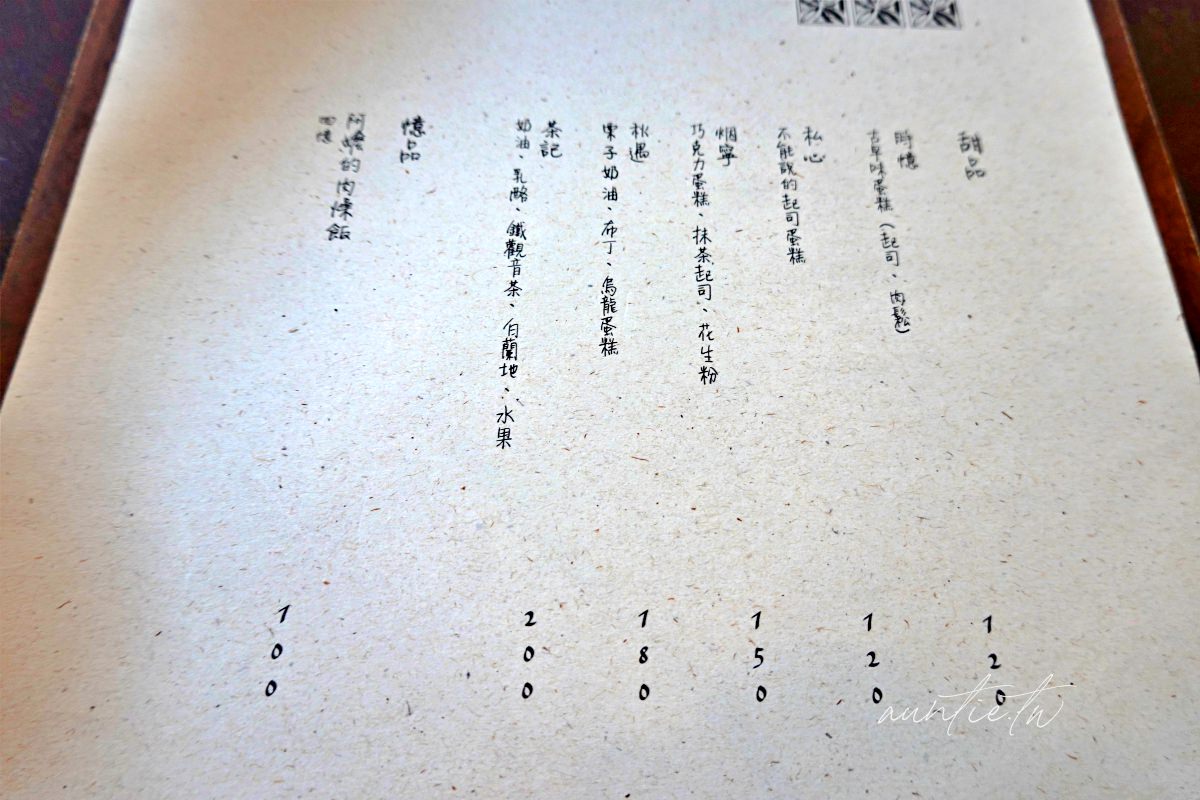 甜品
時憶
古早味蛋糕(起司、肉鬆)
120
私心
不能說的起司蛋糕
120
烟寧
巧克力蛋糕、抹茶起司、花生粉
150
秋遇
栗子奶油、布丁、烏龍蛋糕
180
茶記
奶油、乳酪、鐵觀音茶、白蘭地、水果
200
憶品
阿嬤的肉燥飯
回憶
100
auntie.tw